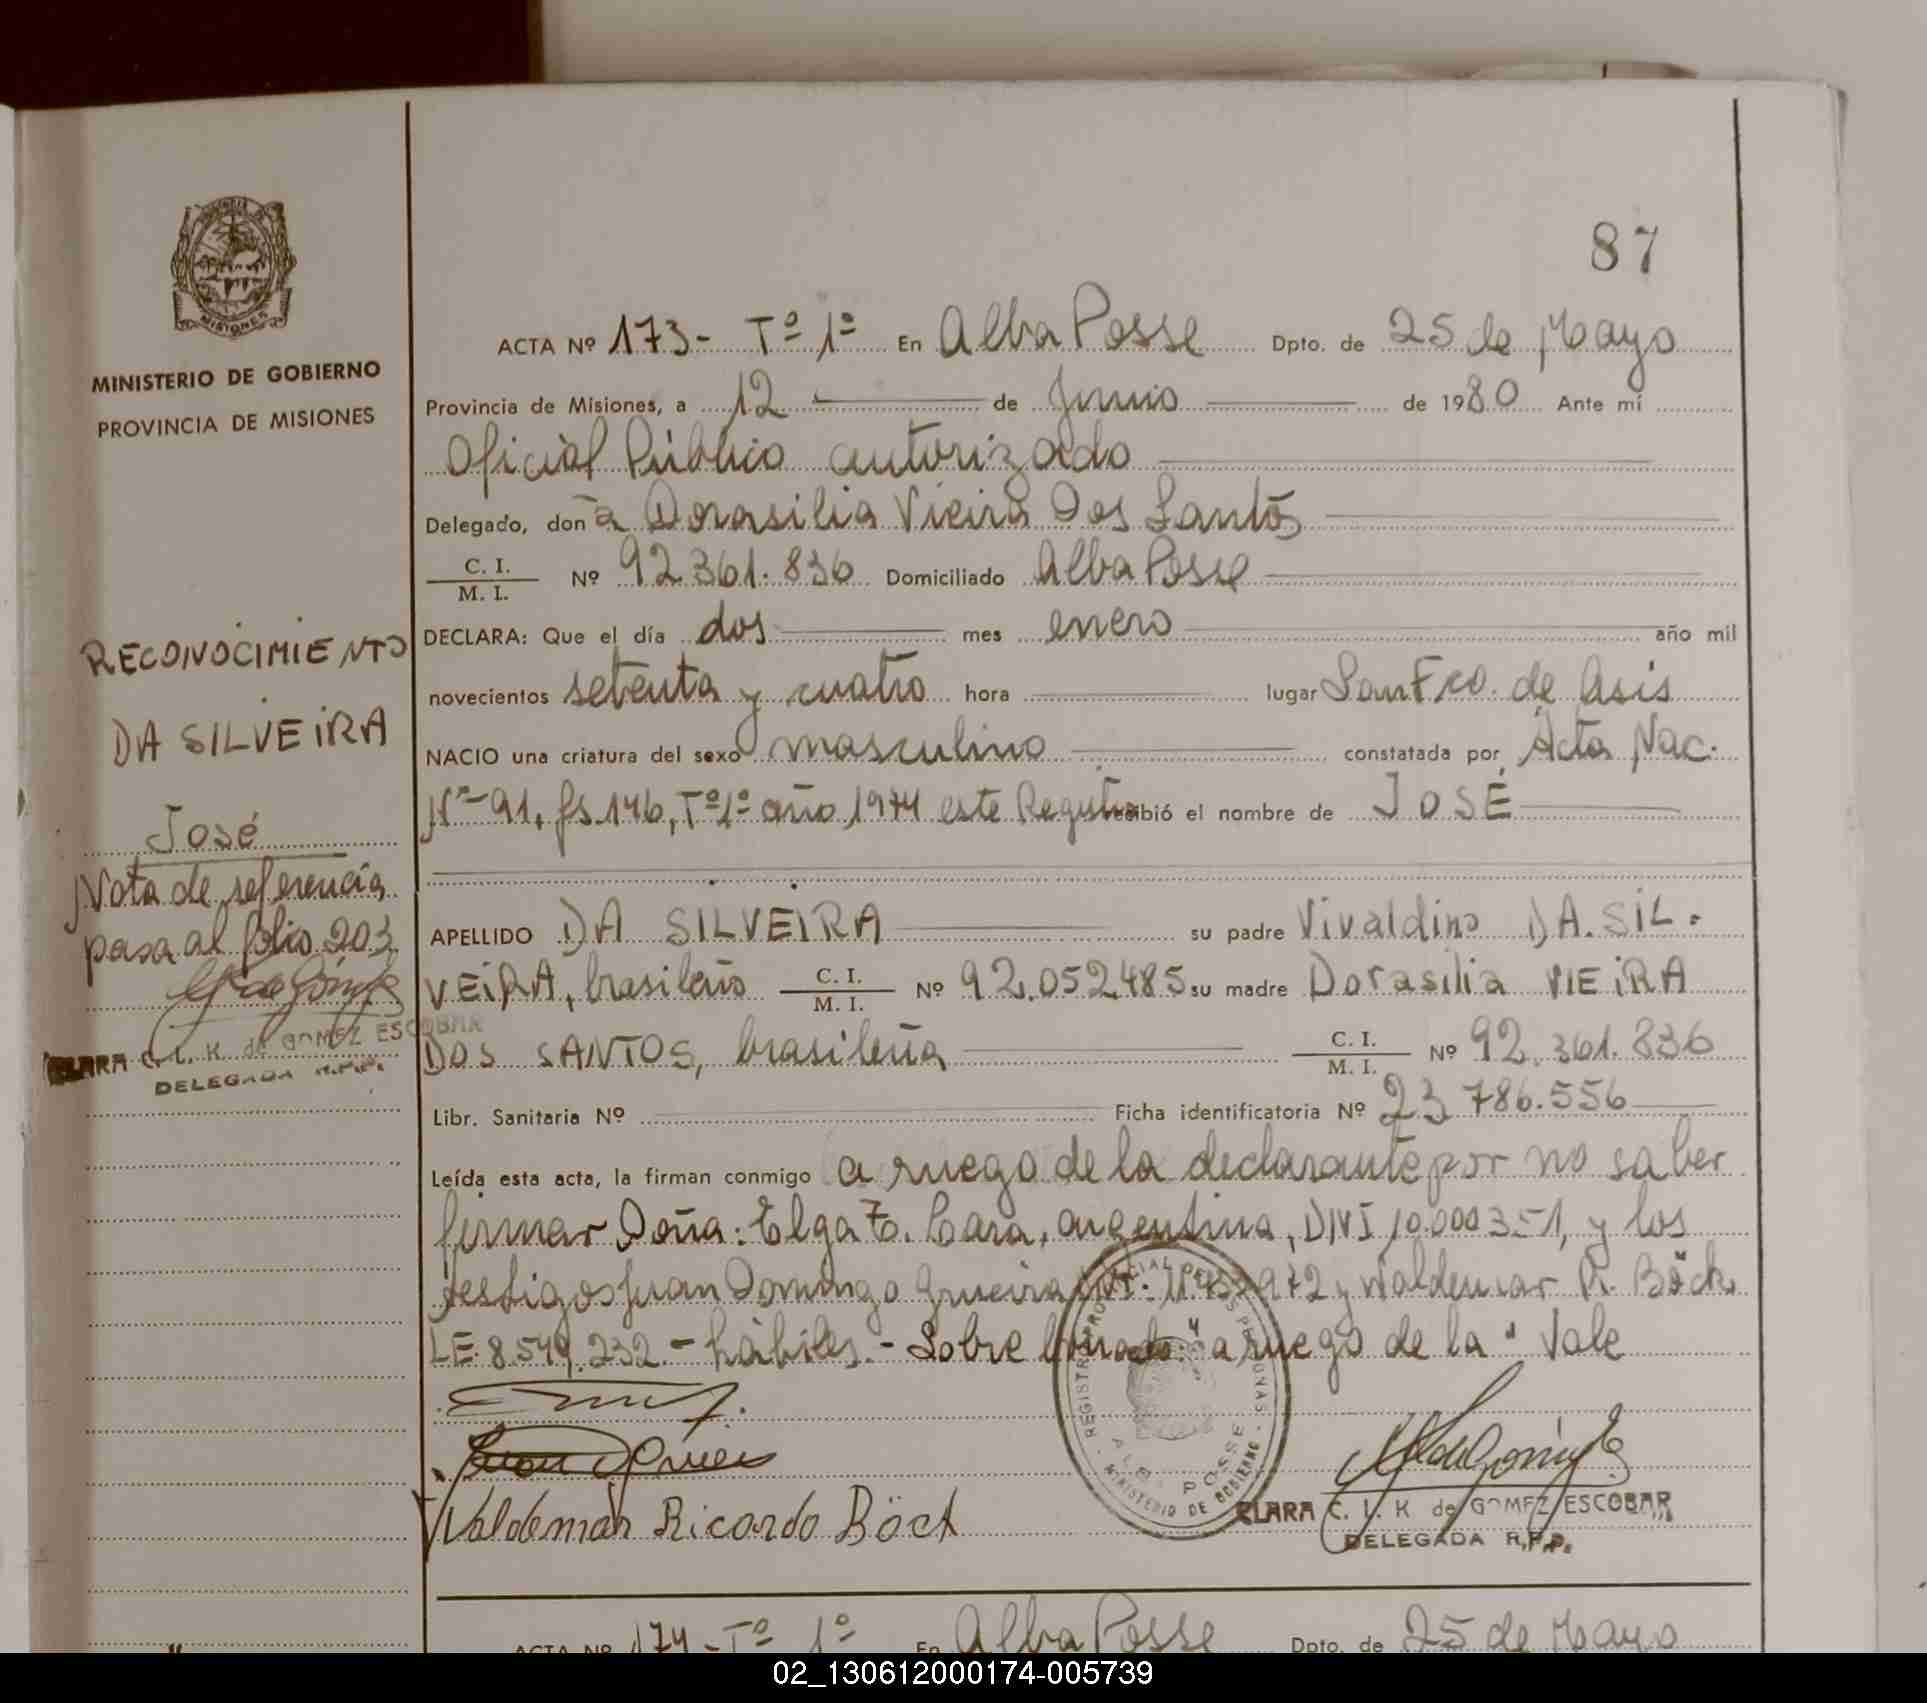 87
MINISTERIO DE GOBIERNO
PROVINCIA DE MISIONES
RECONOCIMIENTO
DA SILVEIRA
José
Nota de referencia
pasa al folio 203
CLARA C. L. K. de GOMEZ ESCOBAR
DELEGADA R.P.P.
ACTA Nº 173- Tº 1º En Alba Posse Dpto. de 25 de Mayo
Provincia de Misiones, a 12 de Junio de 1980 Ante mí
Oficial Público autorizado
Delegado, don a Dorasilia Vieira Dos Santos
C. I. / M. I. Nº 92.361.836 Domiciliado Alba Posse
DECLARA: Que el día dos mes enero año mil
novecientos setenta y cuatro hora lugar San Fco. de Asis
NACIO una criatura del sexo masculino constatada por Acta Nac.
Nº 91, fs. 146, Tº 1º año 1974 este Registro recibió el nombre de JOSÉ
APELLIDO DA SILVEIRA su padre Vivaldino DA SIL-
VEIRA, brasileño C. I. / M. I. Nº 92.052.485 su madre Dorasilia VIEIRA
DOS SANTOS, brasileña C. I. / M. I. Nº 92.361.836
Libr. Sanitaria Nº Ficha identificatoria Nº 23 786.556
Leída esta acta, la firman conmigo a ruego de la declarante por no saber
firmar Doña: Elga E. Cara, argentina, DNI 10.000351, y los
testigos Juan Domingo y Waldemar R. Böck
LE. 8.549.232.- hábiles.- Sobre borrado: "a ruego de la" Vale
Valdemar Ricardo Böck
REGISTRO PROVINCIAL DE LAS PERSONAS
ALBA POSSE
MINISTERIO DE GOBIERNO
CLARA C. L. K de GOMEZ ESCOBAR
DELEGADA R.P.P.
ACTA Nº 174-Tº 1º En Alba Posse Dpto. de 25 de Mayo
02_130612000174-005739